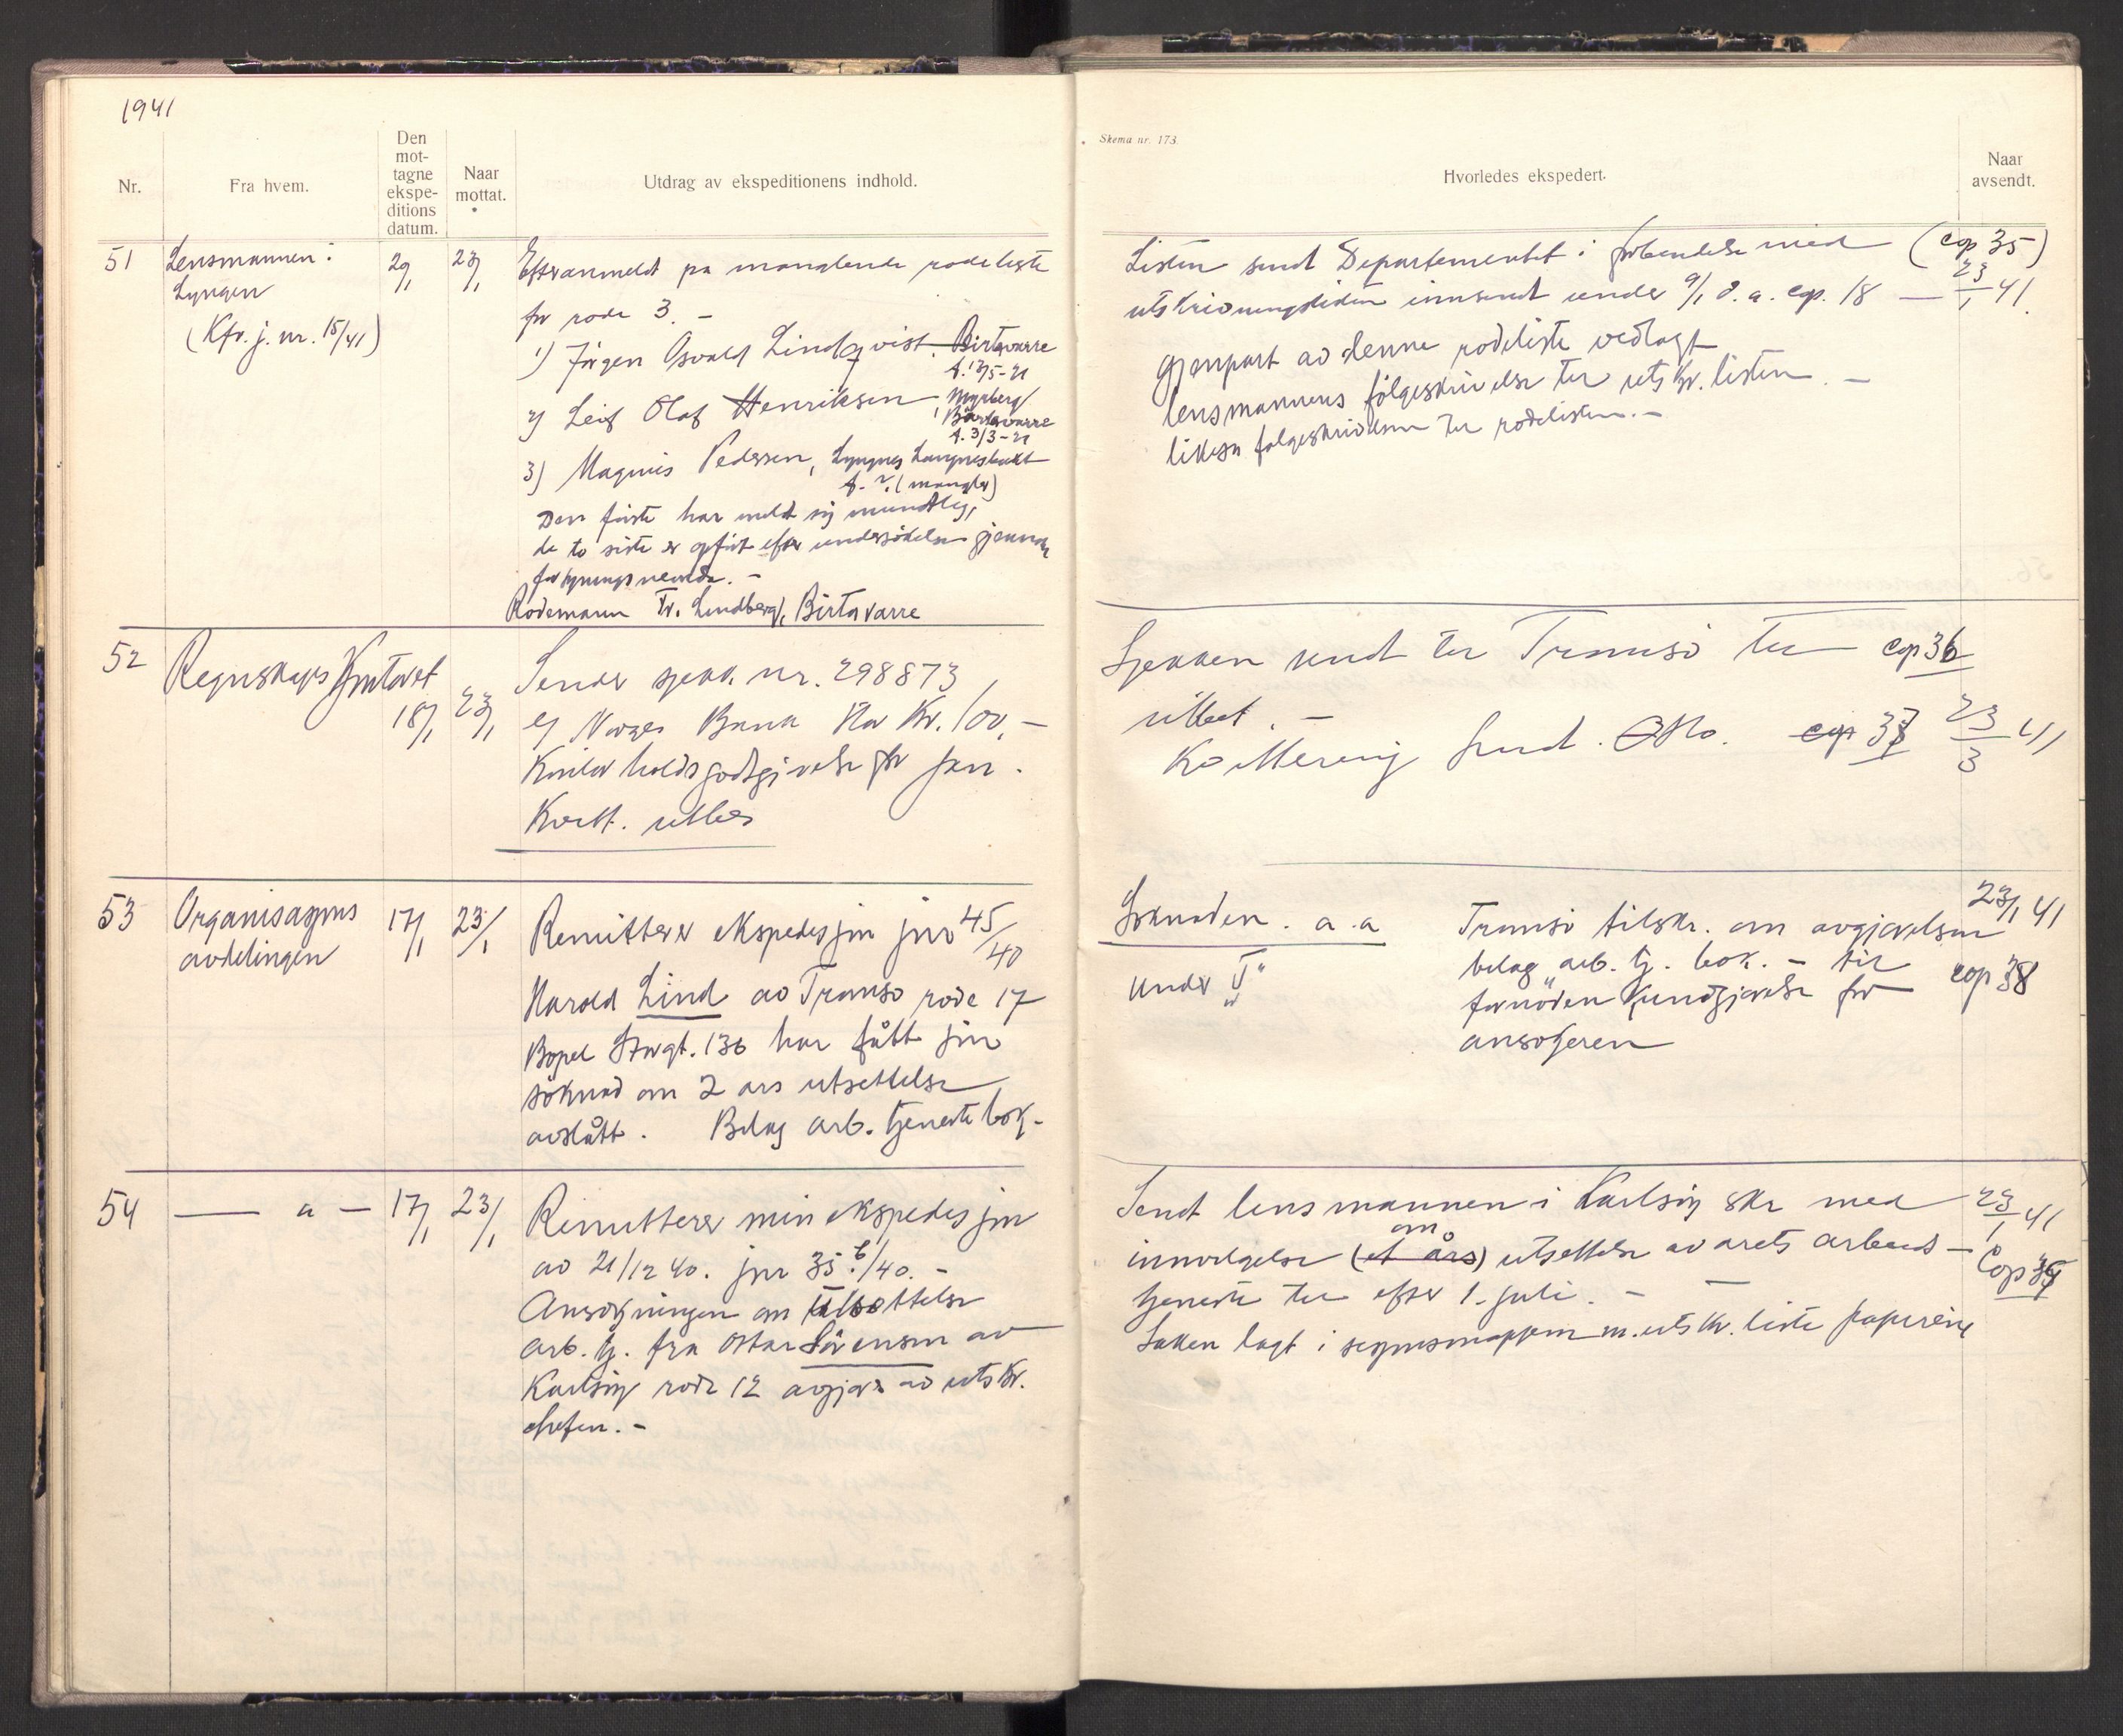 1941
Nr.
Fra hvem.
Den
mot-
tagne
ekspe-
ditions
datum.
Naar
mottat.
Utdrag av ekspeditionens indhold.
51
Lensmannen i
Lyngen
(Kfr. j. nr. 15/41)
23/1
Efteranmeldt på manglende rodeliste
for rode 3. -
1) Jörgen Osvald Lindqvist, Birtavarre
f. 12/5-21
2) Leif Olaf Henriksen, Myrberg/
Birtavarre
f. 3/3-21
3) Magnus Pedersen, Lyngnes Langneslukt
f. ? (mangler)
Den første har meldt sig mundtlig,
de to siste er opført efter undersökelse gjennem
forsyningsnemda. -
Rodemann Tr. Lindberg, Birtavarre
52
Regnskapskontoret
18/1
23/1
Sender sjekk nr. 298873
på Norges Bank stor Kr. 100,-
Kontorholdsgodtgjørelse for jan.
Kvitt. utbes
53
Organisasjons
avdelingen
17/1
23/1
Remitterer ekspedisjon jnr 45/40
Harald Lind av Tromsö rode 17
Bopel Storgt. 136 har fått sin
söknad om 2 års utsettelse
avslått. Bilag arb. tjeneste bok.
54
— a —
17/1
23/1
Remitterer min ekspedisjon
av 21/12 40. jnr 35 b/40. -
Ansökningen om utsettelse
arb. tj. fra Ottar Sörensen av
Karlsöy rode 12 avgjort av utskr.
chefen. -
Skema nr. 173.
Hvorledes ekspedert.
Naar
avsendt.
Listen sendt Departementet i forbindelse med (cop 35)
utskrivningslisten innsendt under 9/1 d. a. cop. 18 — 23/1 41.
Gjenpart av denne rodeliste vedlagt
lensmannens fölgeskrivelse til utskr. listen. -
likeså fölgeskrivelsen til rodelisten. -
Sjekken sendt til Tromsö til cop 36
utbet. -
Kvittering sendt Oslo. cop 37 23/3 41
Söknaden. a.a
under "V"
Tromsö tilskr. om avgjörelsen 23/1 41
bilag "arb. tj. bok. - til cop 38
fornöden kundgjörelse for
ansökeren
Sendt lensmannen i Karlsöy skr med 23/1 41
innvilgelse (et års) om utsettelse av årets arbeids - cop 39
tjeneste til efter 1. juli. -
Saken lagt i sesjonsmappen m. utskr. liste papirene